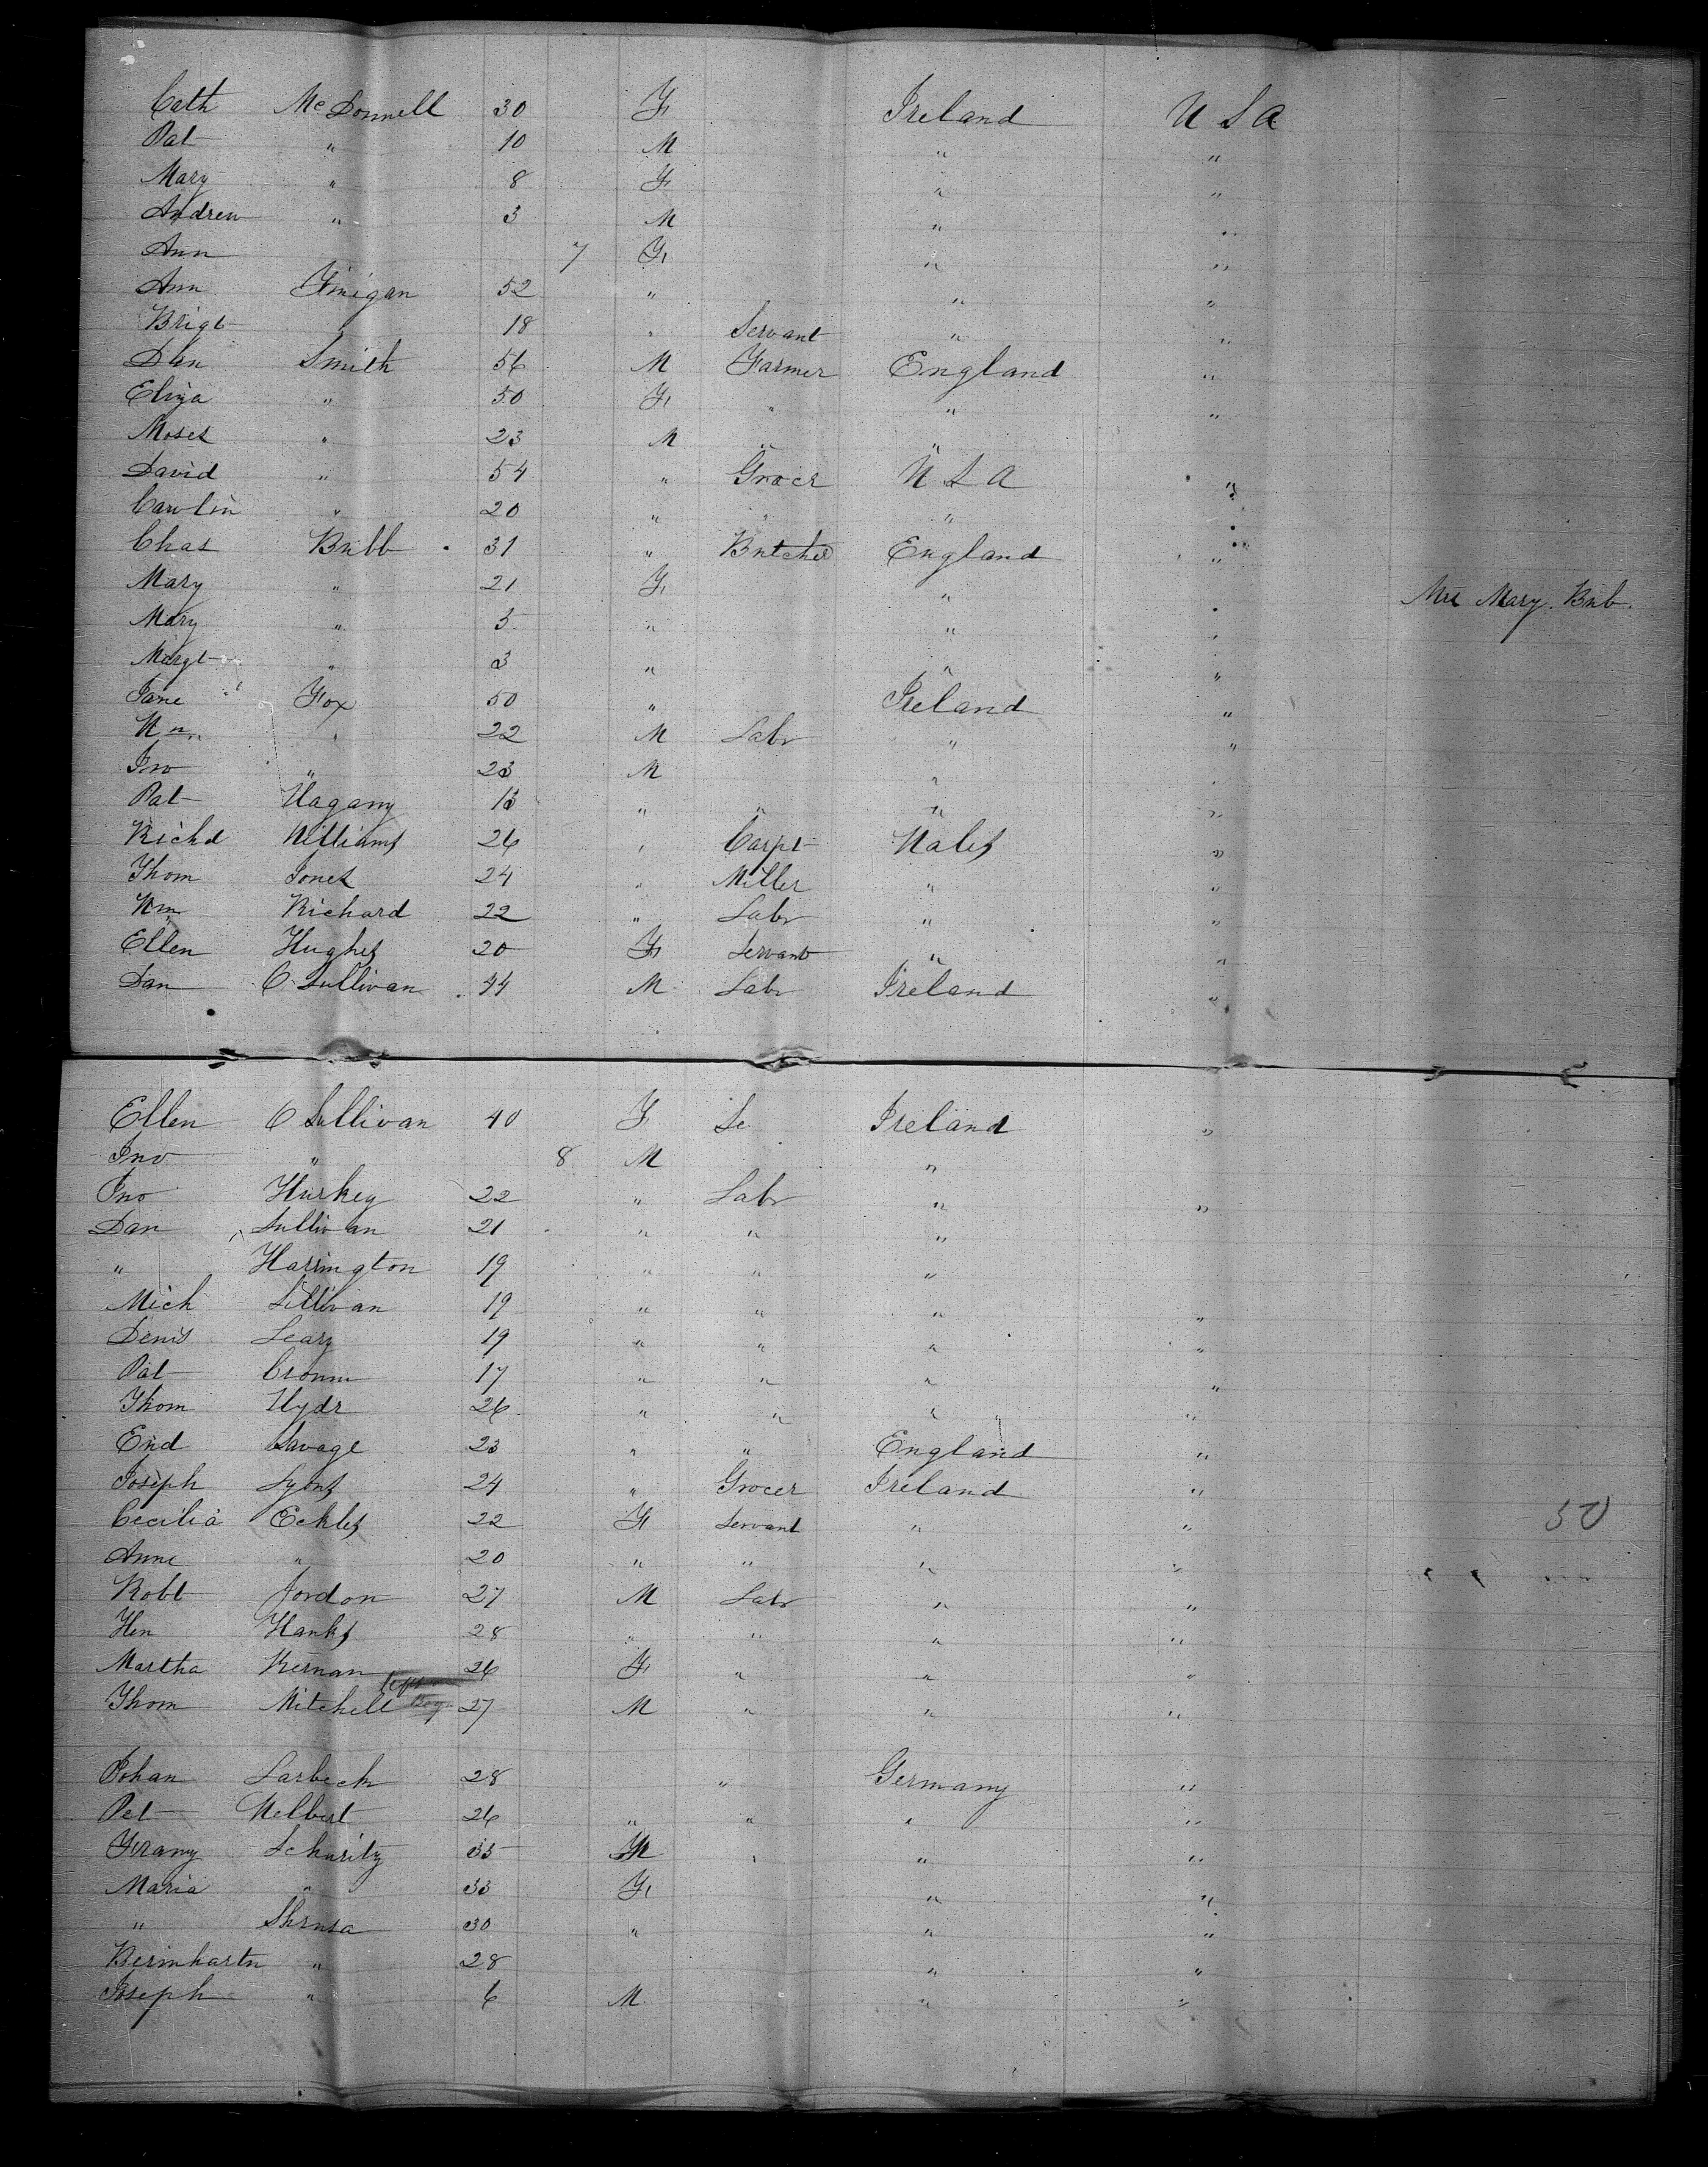 Cath McDonnell 30 F Ireland U S A
Pat " 10 M " "
Mary " 8 F " "
Andrew " 3 M " "
Ann 7 F " "
Ann Finigan 52 " " "
Brigt " 18 " Servant " "
Dan Smith 56 M Farmer England "
Eliza " 50 F " " "
Moses " 23 M " "
David " 54 " Grocer U S A "
Carolin " 20 " " "
Chas Bubb 31 " Butcher England "
Mary " 21 F " " Mrs Mary. Bub.
Mary " 5 " " "
Margt " 3 " " "
Jane Fox 50 " Ireland "
Wm " 22 M Labr " "
Jno " 23 M " "
Pat Hagany 13 " " " "
Richd Williams 26 " Carpt Wales "
Thom Jones 24 " Miller " "
Wm Richard 22 " Labr " "
Ellen Hughes 20 F Servant " "
Dan O Sullivan 44 M Labr Ireland "
Ellen O Sullivan 40 F Se Ireland "
Jno " 8 M "
Jno Hurkey 22 " Labr " "
Dan Sullivan 21 " " "
" Harrington 19 " " "
Mich Sullivan 19 " " " "
Denis Leary 19 " " " "
Pat Cronin 17 " " " "
Thom Hyde 26 " " " "
End Savage 23 " " England "
Joseph Lyons 24 " Grocer Ireland "
Cecilia Eckles 22 F Servant " " 50
Anne " 20 " " " "
Robt Jordon 27 M Labr " "
Hen Hanks 28 " " " "
Martha Kernan 26 F " " "
Thom Mitchell 27 M " " "
Johan Larbech 28 " Germany "
Pet Welbert 26 " " " "
Frany Schuritz 35 M " " "
Maria " 33 F " "
" Shrusa 30 " " "
Bernhartn " 28 " "
Joseph " 6 M " "